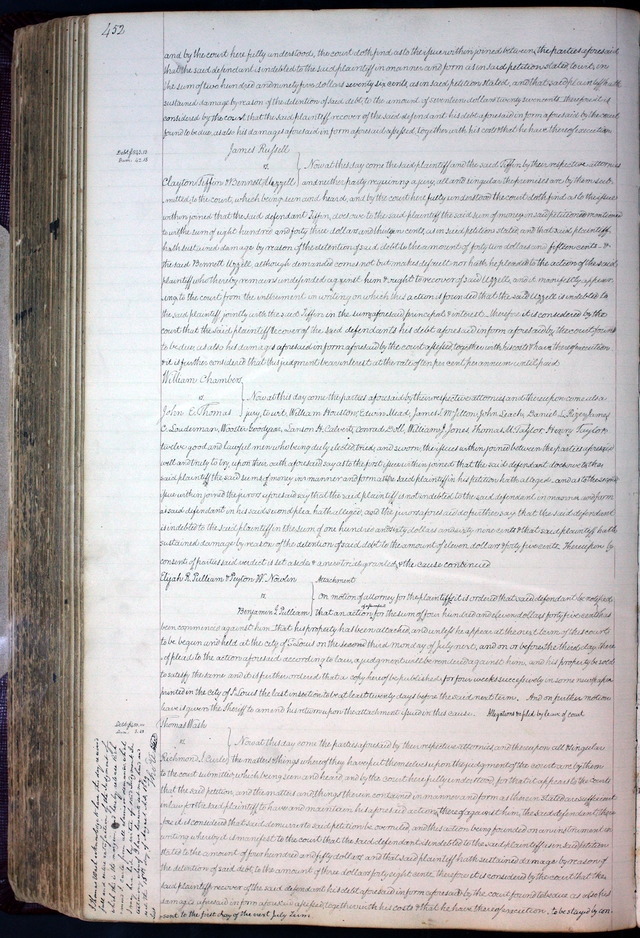 452
and by the court here fully understood, the court doth find as to the issue within joined between the parties aforesaid
that the said defendant is indebted to the said plaintiff in manner and form as in said petition stated, to wit, in
the sum of two hundred and ninety five dollars seventy six cents, as in said petition stated, and that said plaintiff hath
sustained damage by reason of the detention of said debt to the amount of seventeen dollars twenty seven cents. Therefore it is
considered by the court that the said plaintiff recover of the said defendant his debt aforesaid in form aforesaid by the court
found to be due, as also his damages aforesaid in form aforesaid assessed, together with his costs & that he have thereof execution
James Russell
vs
Now at this day come the said plaintiff and the said Tiffin by their respective attornies
Clayton Tiffin & Bennett Uzzell
and neither party requiring a jury, all and singular the premises are by them sub-
mitted to the court, which being seen and heard, and by the court here fully understood the court doth find as to the issue
within joined that the said defendant Tiffin, does owe to the said plaintiff the said sum of money in said petition mentioned
to wit the sum of eight hundred and forty three dollars and cents, as in said petition stated, and that said plaintiff
hath sustained damage by reason of the detention of said debt to the amount of forty two dollars and fifteen cents. &
the said Bennett Uzzell although demanded comes not but makes default nor hath he pleaded to the action of the said
plaintiff who thereby remains undefended against him & ought to recover of said Uzzell, and it manifestly appear-
ing to the court from the instrument in writing on which this action is founded that the said Uzzell is indebted to
the said plaintiff jointly with the said Tiffin in the sum aforesaid principal & interest. Therefore it is considered by the
court that the said plaintiff recover of the said defendants his debt aforesaid in form aforesaid by the court found
to be due, as also his damages aforesaid in form aforesaid by the court assessed together with his costs & have thereof execution
& it is further considered that this judgment bear interest at the rate of ten per cent per annum until paid
William Chambers
vs
Now at this day come the parties aforesaid by their respective attornies and thereupon comes also a
John E. Thomas
jury, to wit, William Houston, Edwin Mead, James L. McJilton, John Leach, Daniel L. James
C. Louderman, Wooster Goodyear, Sanson H. Calvert, Conrad Doll, William J. Jones, Thomas M. Taylor, Henry Taylor
twelve good and lawful men who being duly elected, tried, and sworn, the issues within joined between the parties aforesaid
well and truly to try, upon their oath aforesaid say as to the first issue within joined that the said defendant does owe to the
said plaintiff the said sum of money in manner and form as the said plaintiff in his petition hath alleged. and as to the second
issue within joined the jurors aforesaid say that the said plaintiff is not indebted to the said defendant in manner and form
as said defendant in his said second plea hath alleged, and the jurors aforesaid do further say that the said defendant
is indebted to the said plaintiff in the sum of one hundred and sixty dollars and sixty nine cents & that said plaintiff hath
sustained damage by reason of the detention of said debt to the amount of eleven dollars & forty five cents. Thereupon by
consent of parties said verdict is set aside & a new trial granted, & the cause continued
Elijah R. Pulliam & Peyton W. Nowlin
Attachment
vs
On motion of attorney for the plaintiffs it is ordered that said defendant be notified
Benjamin J. Pulliam
that an action for the sum of four hundred and eleven dollars forty five cents has
been commenced against him, that his property has been attached, and unless he appear at the next term of this court
to be begun and held at the city of St Louis on the second third monday of July next, and on or before the third day there-
of plead to the action aforesaid according to law, a judgment will be rendered against him, and his property be sold
to satisfy the same and it is further ordered that a copy hereof be published for four weeks successively in some newspaper
printed in the city of St Louis the last insertion to be at least twenty days before the said next term. And on further motion
leave is given the Sheriff to amend his return upon the attachment issued in this cause. Allegations refiled by leave of court
Thomas Wash
vs
Now at this day come the parties aforesaid by their respective attornies and thereupon all & singular
Richmond J. Curle
the matters & things whereof they have put themselves upon the judgment of the court are by them
to the court submitted, which being seen and heard, and by the court here fully understood, for that it appears to the court
that the said petition, and the matters and things therein contained in manner and form as therein stated are sufficient
in law for the said plaintiff to have and maintain his aforesaid action thereof against him, the said defendant, there-
fore it is considered that said demurrer to said petition be overruled, and this action being founded on an instrument in
writing whereby it is manifest to the court that the said defendant is indebted to the said plaintiff as in said petition
stated to the amount of four hundred and fifty dollars and that said plaintiff hath sustained damage by reason of
the detention of said debt to the amount of three dollars forty eight cents, therefore it is considered by the court that the
said plaintiff recover of the said defendant his debt aforesaid in form aforesaid by the court found to be due as also his
damages aforesaid in form aforesaid assessed, together with his costs & that he have thereof execution. to be stayed by con-
sent to the first day of the next July Term